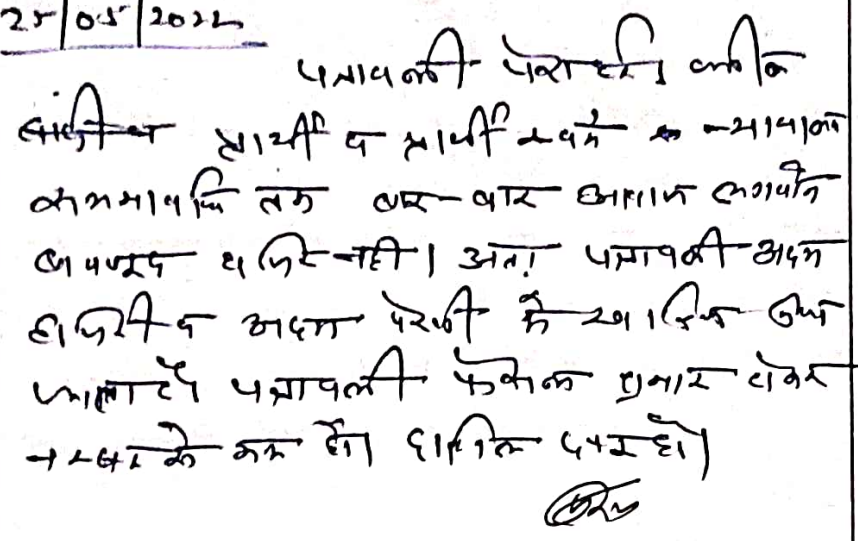 25/05/2022
पत्रावली पेश हुई। वकील
प्रार्थी व प्रार्थी स्वयं न्यायालय
समयावधि तक बार-बार आवाज लगवाने
बावजूद हाजिर नही। अतः पत्रावली अदम
हाजिरी व अदम पैरवी में खारिज की
जाती है। पत्रावली फैसल शुमार होकर
नम्बर से कम हो। दाखिल दफ्तर हो।